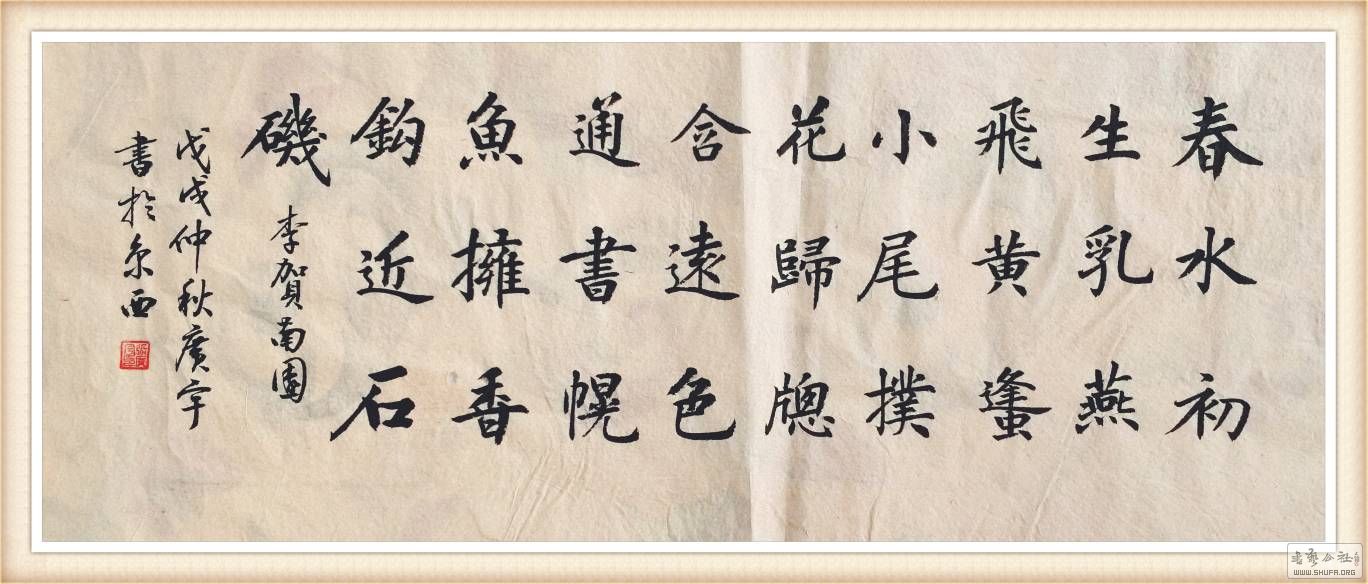 春水初
生乳燕
飛黄蠭
小尾撲
花歸牕
含遠色
通書幌
魚擁香
鈎近石
磯
李賀南園
戊戌仲秋廣宇
書於京西
書藝公社
WWW.SHUFA.ORG